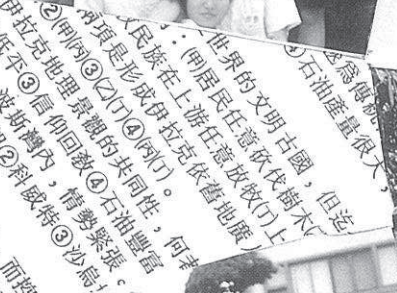 為傳統
石油產量很大，
世界的文明古國，但迄
：(甲)居民任意砍伐樹木(
民族在上游任意放牧(丁)上
兩項是形成伊拉克依舊地廣人
②(甲)(丙)③(乙)(丁)④(丙)(丁)。
伊拉克地理景觀的共同性，何者
平③信仰回教④石油豐富
波斯灣內，情勢緊張。
②科威特③沙烏
而控